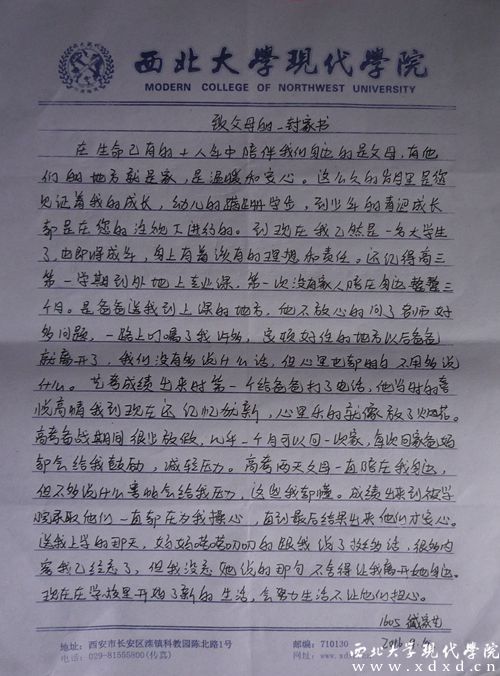 西北大學現代學院
MODERN COLLEGE OF NORTHWEST UNIVERSITY
致父母的一封家书
在生命已有的十八年中陪伴我们身边的是父母,有他
们的地方就是家,是温暖和安心。这么久的岁月里是您
见证着我的成长,幼儿的蹒跚学步,到少年的青涩成长
都是在您的注视下进行的。到现在我已然是一名大学生
了,也即将成年,身上有着该有的理想和责任。还记得高三
第一学期到外地上专业课,第一次没有家人陪在身边整整三
个月。是爸爸送我到上课的地方,他不放心的问了老师好
多问题,一路上叮嘱了我许多,安顿好住的地方以后爸爸
就离开了,我们没有多说什么话,但心里也都明白不用多说
什么。艺考成绩出来时第一个给爸爸打了电话,他当时的喜
悦高情我到现在还记忆犹新,心里乐的就像放了烟花。
高考备战期间很少放假,几乎一个月可以回一次家,每次回家爸妈
都会给我鼓励,减轻压力。高考两天父母一直陪在我身边,
但不多说什么害怕会给我压力,这些我都懂。成绩出来到被学
院录取他们一直都在为我操心,直到最后结果出来他们才安心。
送我上学的那天,妈妈唠唠叨叨的跟我说了挺多话,很多内
容我已经忘了,但我没忘她说的那句不舍得让我离开她身边。
现在在学校里开始了新的生活,会努力生活不让他们担心。
1605
2016.9.
地址:西安市长安区滦镇科教园陈北路1号
邮编:710130
电话:029-81555800(传真)
网址:www.xdxd.cn
西北大学现代学院
www.xdxd.cn